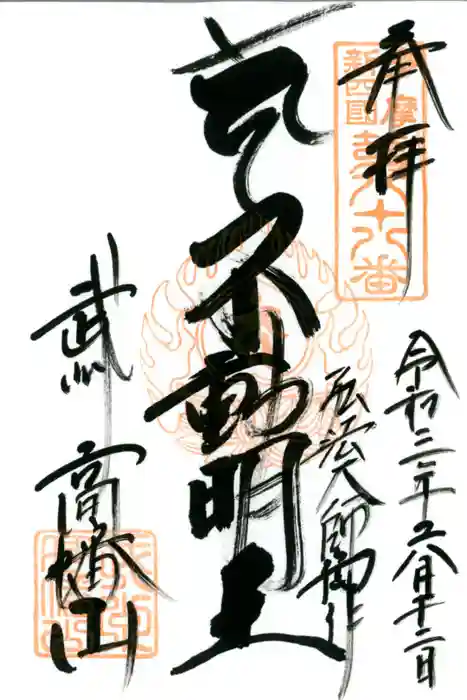 奉拝
摩
新四國
八十八番
令和三年八月十二日
弘法大師御作
不動明王
武州 高幡山